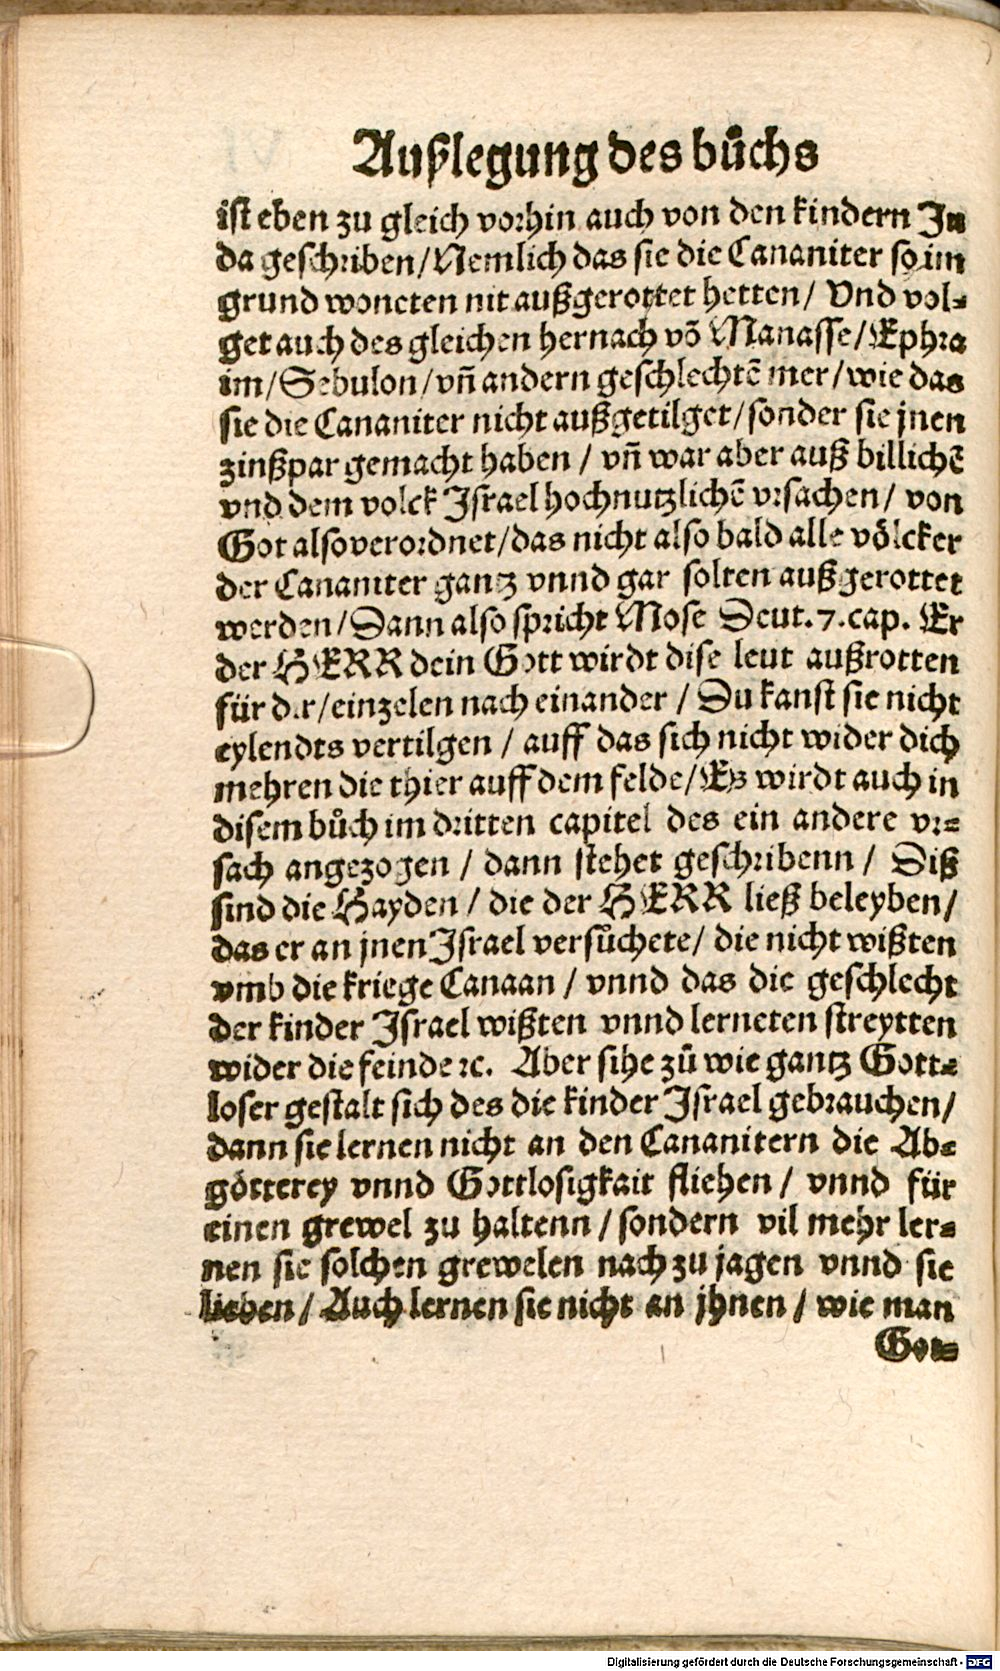 Außlegung des bůchs
ist eben zu gleich vorhin auch von den kindern Ju
da geschriben/Nemlich das sie die Cananiter so im
grund woneten nit außgerottet hetten/ Vnd vol⸗
get auch des gleichen hernach võ Manasse/Ephra
im/Sebulon/vñ andern geschlechtẽ mer/wie das
sie die Cananiter nicht außgetilget/sonder sie jnen
zinßpar gemacht haben / vñ war aber auß billichẽ
vnd dem volck Israel hochnutzlichẽ vrsachen/ von
Got also verordnet/das nicht also bald alle völcker
der Cananiter gantz vnnd gar solten außgerottet
werden/Dann also spricht Mose Deut.7.cap. Er
der HERR dein Gott wirdt dise leut außrotten
für dir/einzelen nach einander / Du kanst sie nicht
eylendts vertilgen / auff das sich nicht wider dich
mehren die thier auff dem felde/Es wirdt auch in
disem bůch im dritten capitel des ein andere vr⸗
sach angezogen / dann stehet geschribenn / Diß
sind die Hayden / die der HERR ließ beleyben/
das er an jnen Israel versůchete/ die nicht wißten
vmb die kriege Canaan / vnnd das die geschlecht
der kinder Israel wißten vnnd lerneten streytten
wider die feinde ꝛc. Aber sihe zů wie gantz Gott⸗
loser gestalt sich des die kinder Israel gebrauchen/
dann sie lernen nicht an den Cananitern die Ab⸗
götterey vnnd Gottlosigkait fliehen / vnnd für
einen grewel zu haltenn / sondern vil mehr ler⸗
nen sie solchen grewelen nach zu jagen vnnd sie
lieben / Auch lernen sie nicht an jhnen / wie man
Got⸗
Digitalisierung gefördert durch die Deutsche Forschungsgemeinschaft - DFG